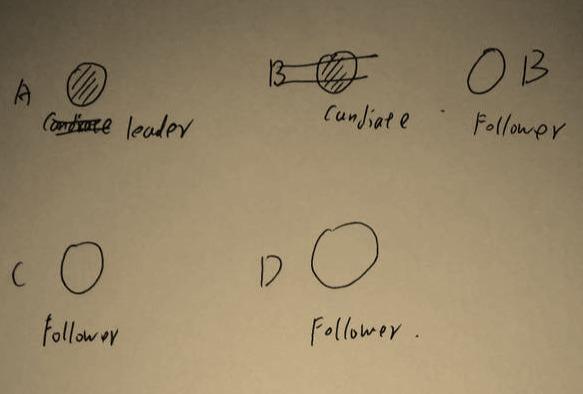 A
leader
B
Candiate
B
Follower
C
Follower
D
Follower.